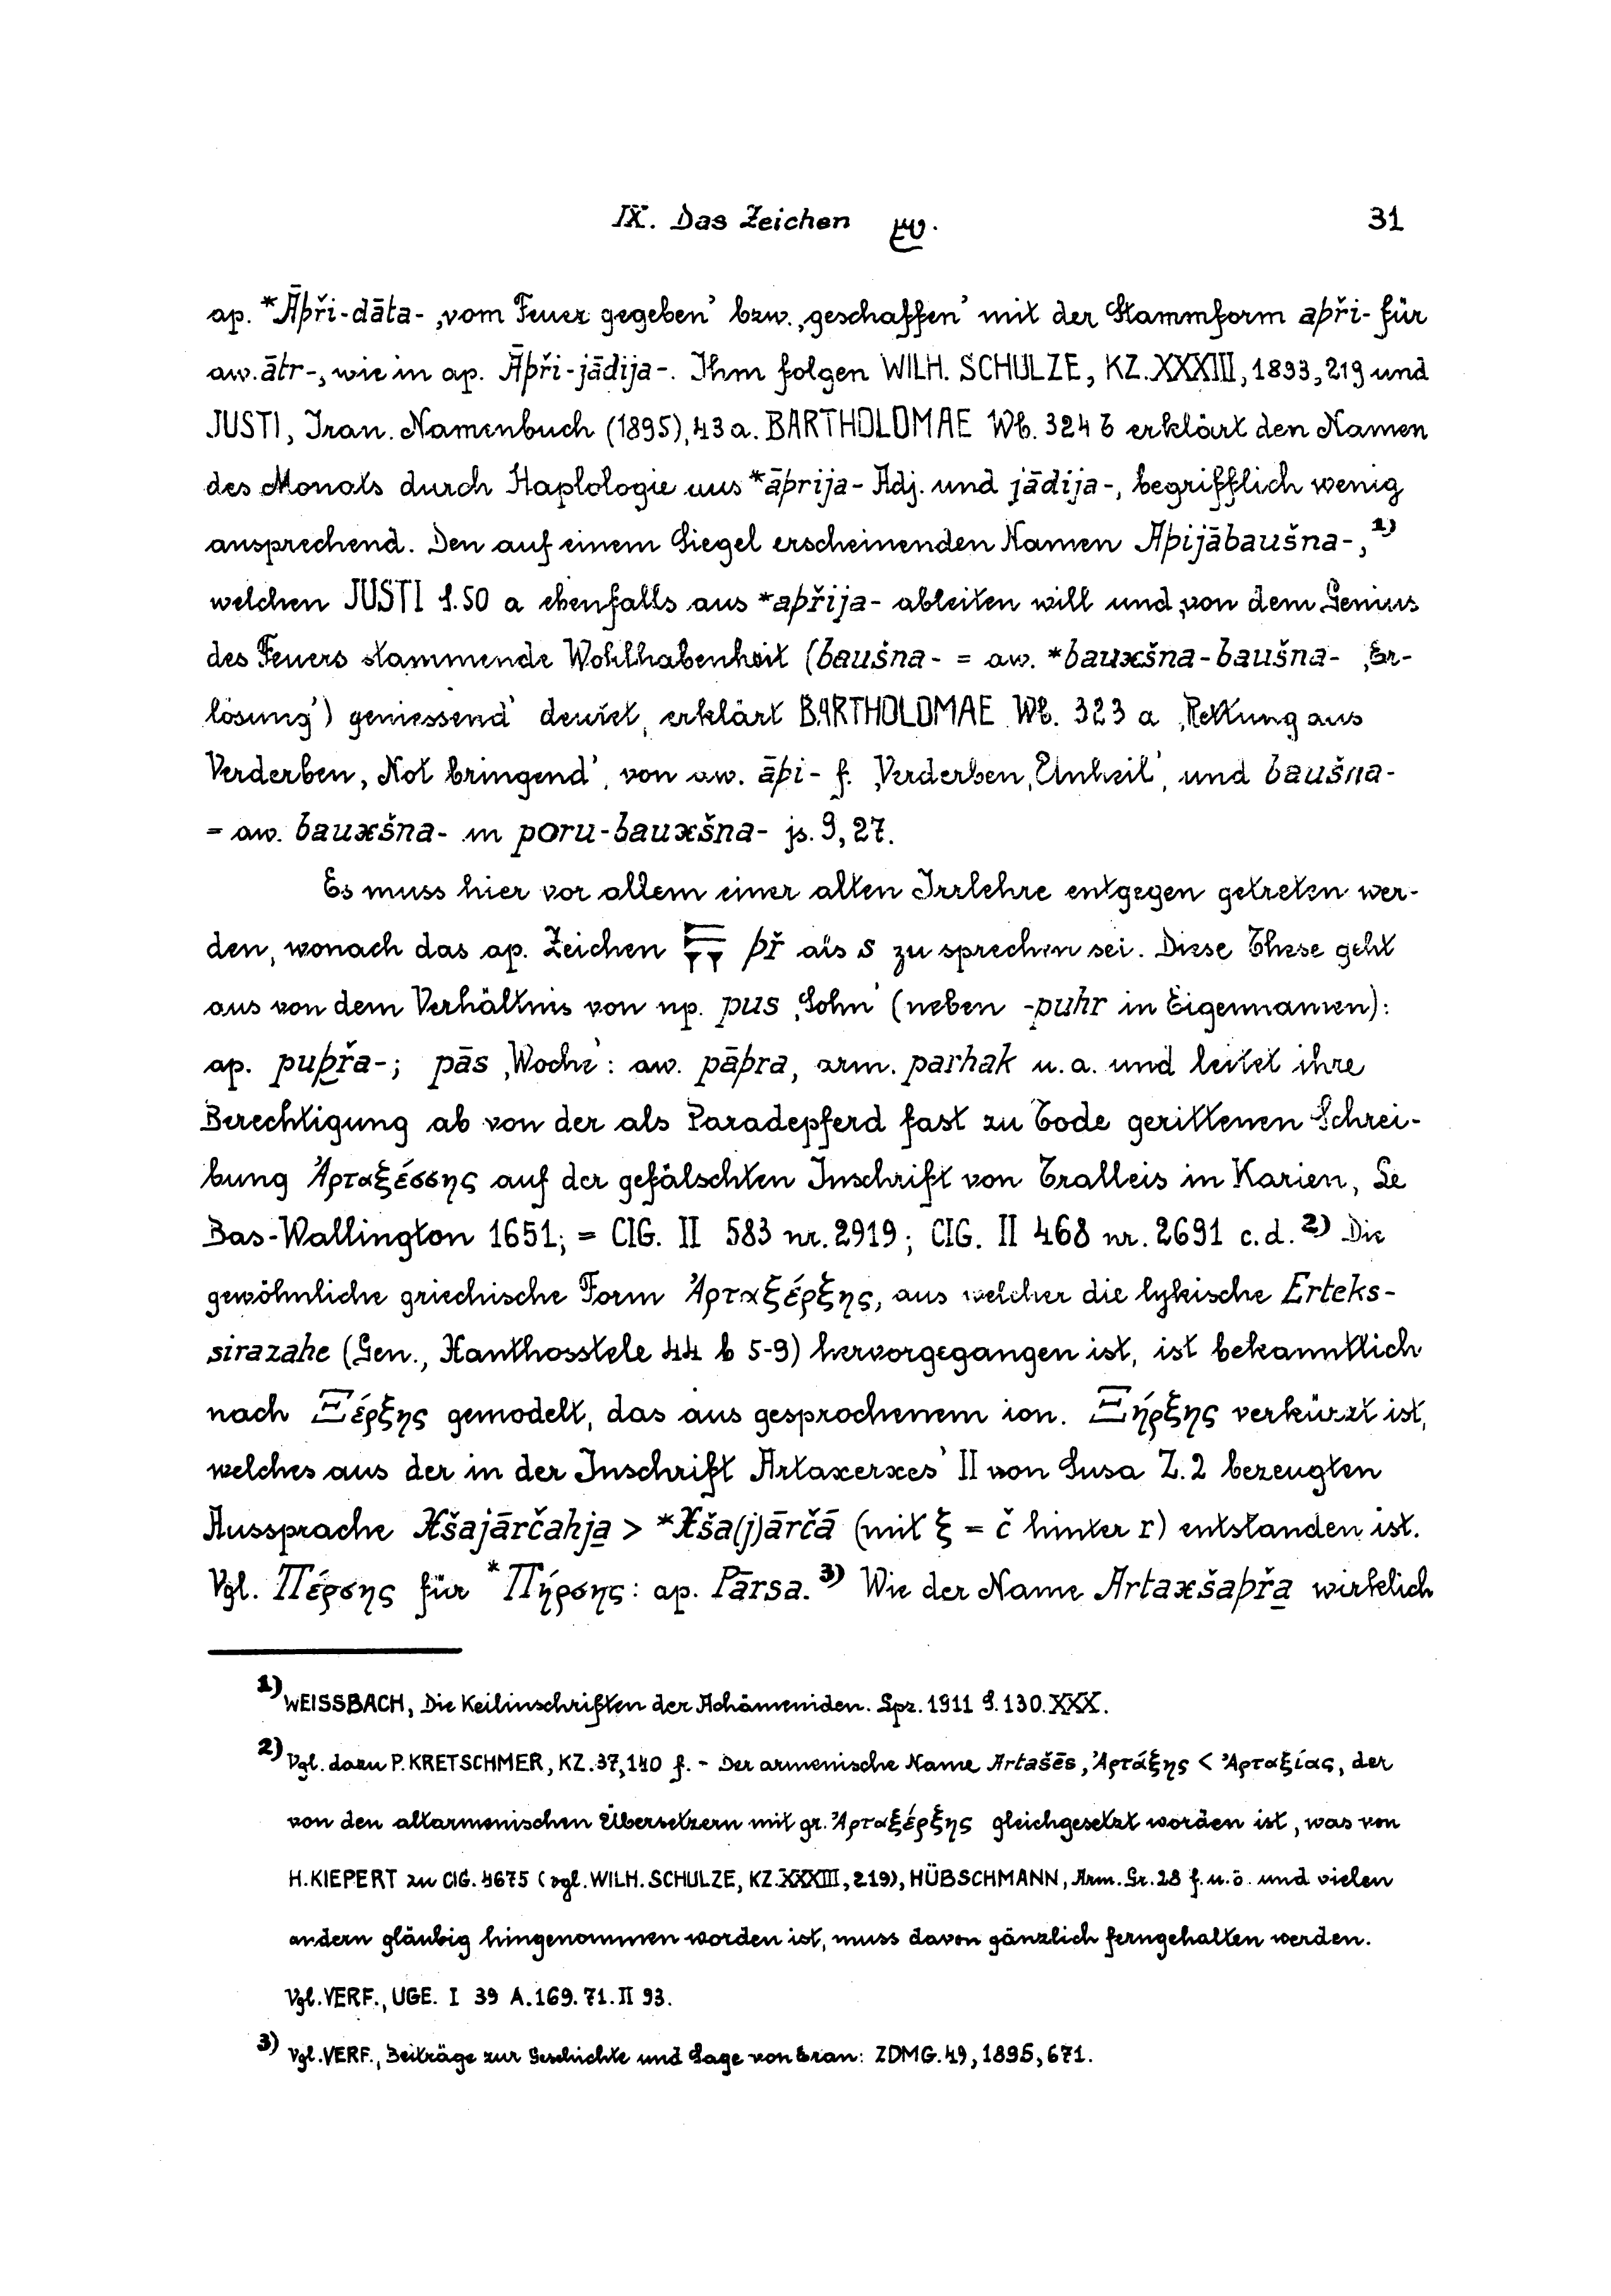 IX. Das Zeichen 31
ap. *Āþři-dāta- ‚vom Feuer gegeben’ bzw. ‚geschaffen’ mit der Stammform aþři- für
aw. ātr-, wie in ap. Āþři-jādija-. Ihm folgen WILH. SCHULZE, KZ. XXXIII, 1893, 219 und
JUSTI, Iran. Namenbuch (1895), 43 a. BARTHOLOMAE Wb. 324 b erklärt den Namen
des Monats durch Haplologie aus *āþrija- Adj. und jādija-, begrifflich wenig
ansprechend. Den auf einem Siegel erscheinenden Namen Aþijābaušna-,¹⁾
welchen JUSTI S. 50 a ebenfalls aus *aþřija- ableiten will und ‚von dem Genius
des Feuers stammende Wohlhabenheit (baušna- = aw. *bauxšna-baušna- ‚Er-
lösung’) geniessend’ deutet, erklärt BARTHOLOMAE Wb. 323 a ‚Rettung aus
Verderben, Not bringend’, von aw. āþi- f. ‚Verderben, Unheil’, und baušna-
= aw. bauxšna- in poru-bauxšna- js. 9, 27.
Es muss hier vor allem einer alten Irrlehre entgegen getreten wer-
den, wonach das ap. Zeichen 𐏂 þř als s zu sprechen sei. Diese These geht
aus von dem Verhältnis von np. pus ‚Sohn’ (neben -puhr in Eigennamen):
ap. puþřa-; pās ‚Woche’: aw. pāþra, arm. parhak u. a. und leitet ihre
Berechtigung ab von der als Paradepferd fast zu Tode gerittenen Schrei-
bung Ἀρταξέσσης auf der gefälschten Inschrift von Tralleis in Karien, Le
Bas-Wallington 1651; = CIG. II 583 nr. 2919; CIG. II 468 nr. 2691 c. d.²⁾ Die
gewöhnliche griechische Form Ἀρταξέρξης, aus welcher die lykische Erteks-
sirazahe (Gen., Xanthosstele 44 b 5-9) hervorgegangen ist, ist bekanntlich
nach Ξέρξης gemodelt, das aus gesprochenem ion. Ξήρξης verkürzt ist,
welches aus der in der Inschrift Artaxerxes’ II von Susa Z. 2 bezeugten
Aussprache Xšajārčahja̱ > *Xša(j)ārčā (mit ξ = č hinter r) entstanden ist.
Vgl. Πέρσης für *Πήρσης: ap. Pārsa.³⁾ Wie der Name Artaxšaþřa̱ wirklich
¹⁾ WEISSBACH, Die Keilinschriften der Achämeniden. Lpz. 1911 S. 130. XXX.
²⁾ Vgl. dazu P. KRETSCHMER, KZ. 37, 140 f. - Der armenische Name Artašēs, Ἀρτάξης < Ἀρταξίας, der
von den altarmenischen Übersetzern mit gr. Ἀρταξέρξης gleichgesetzt worden ist, was von
H. KIEPERT zu CIG. 4675 (vgl. WILH. SCHULZE, KZ. XXXIII, 219), HÜBSCHMANN, Arm. Gr. 28 f. u. ö. und vielen
andern gläubig hingenommen worden ist, muss davon gänzlich ferngehalten werden.
Vgl. VERF., UGE. I 39 A. 169. 71. II 93.
³⁾ Vgl. VERF., Beiträge zur Geschichte und Sage von Eran: ZDMG. 49, 1895, 671.